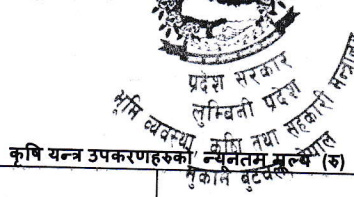 प्रदेश सरकार
लुम्बिनी प्रदेश
भूमि व्यवस्था कृषि तथा सहकारी मन्त्रालय
मुकाम बुटवल नेपाल
कृषि यन्त्र उपकरणहरुको न्यूनतम मूल्य (रु)